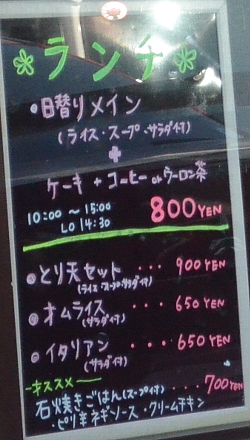 ランチ
・日替りメイン
(ライス・スープ・サラダ付)
+
ケーキ + コーヒー or ウーロン茶
10:00 〜 15:00
LO 14:30
800 YEN
・とり天セット ・・・・ 900 YEN
(ライス・スープ・サラダ付)
・オムライス ・・・・ 650 YEN
(サラダ付)
・イタリアン ・・・・ 650 YEN
(サラダ付)
オススメ
石焼きごはん(スープ付) ・・・ 700 YEN
・ピリ辛ネギソース ・クリームチキン